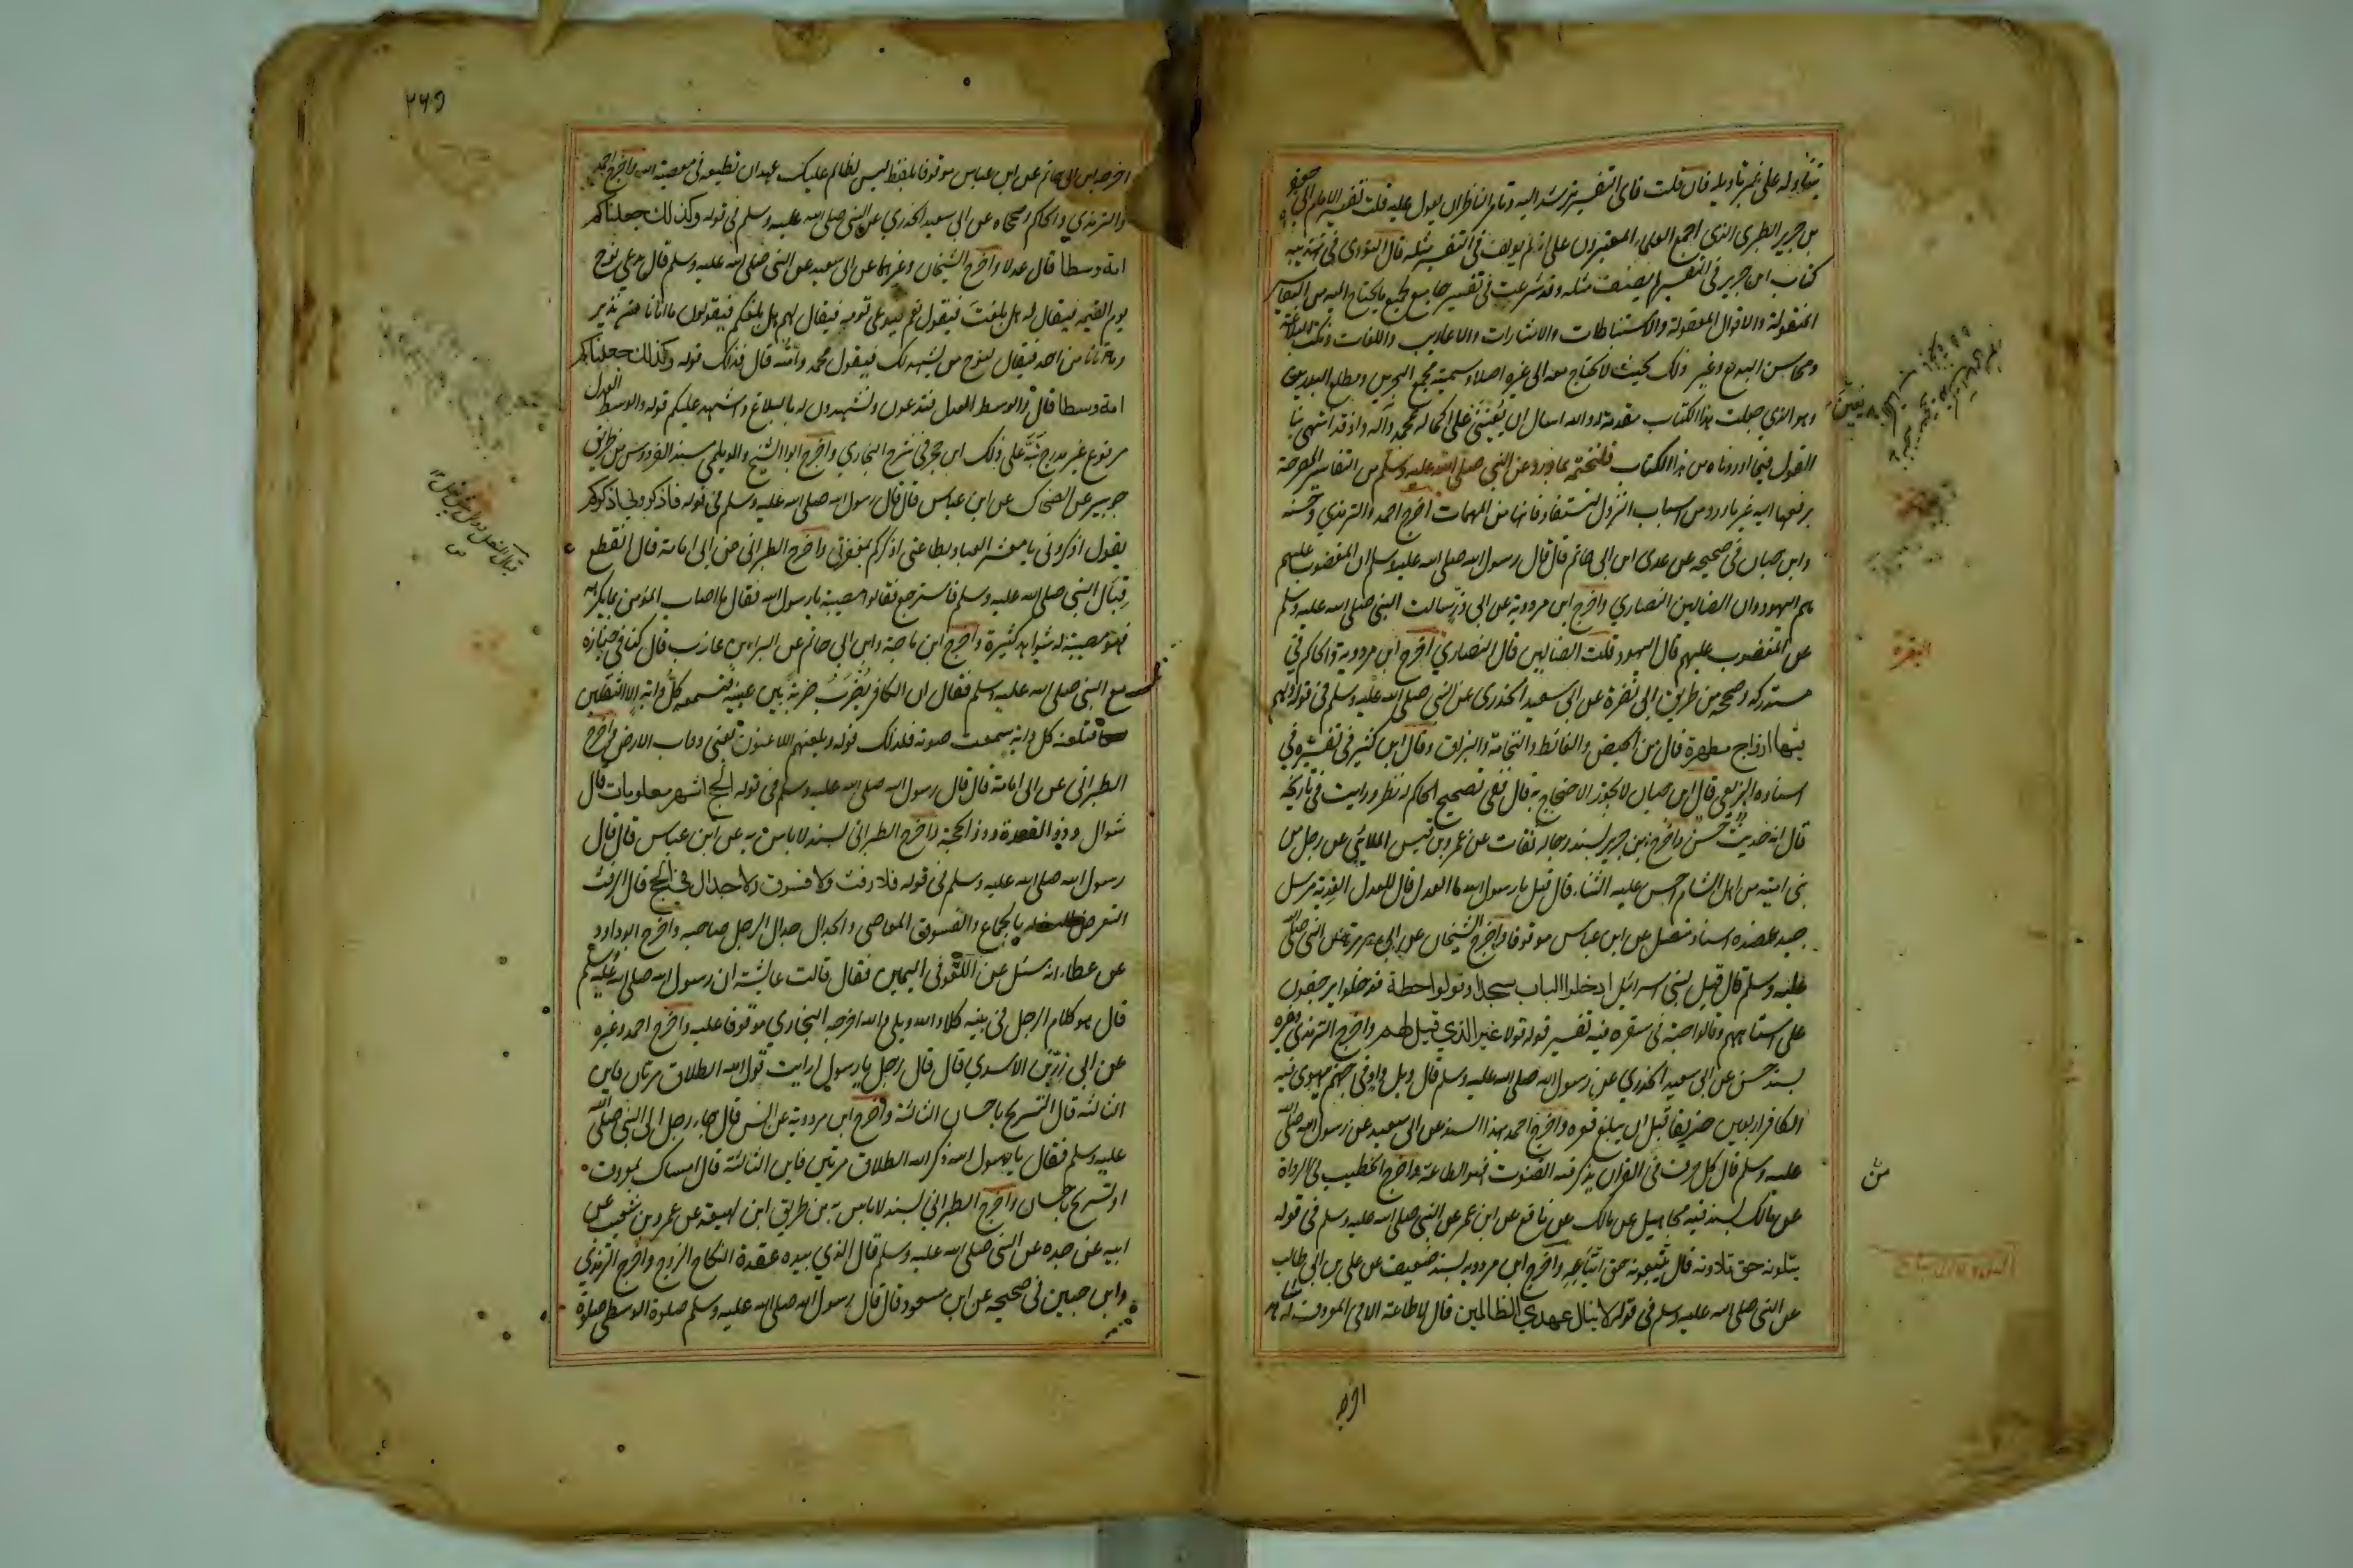 يتأوله على غير تأويله فان قلت فاي التفسير ترشد اليه وتامر الناظر ان يعول عليه قلت تفسير الامام ابي جعفر
بن جرير الطبري الذي اجمع العلماء المعتبرون على انه لم يولف في التفسير مثله قال النووي في تهذيبه
كتاب ابن جرير في التفسير لم يصنف مثله وقد شرعت في تفسير جامع لجميع ما يحتاج اليه من التفاسير
المنقولة والاقوال المعقولة والاستنباطات والاشارات والاعاريب واللغات ونكت البلاغة
ومحاسن البديع وغير ذلك بحيث لا يحتاج معه الى غيره اصلا وسميته بمجمع البحرين ومطلع البدرين
وهو الذي جعلت هذا الكتاب مقدمة له والله اسال ان يعينني على اكماله بمحمد وآله واذ قد انتهى بنا
القول فيما اوردناه من هذا الكتاب فلنختمه بما ورد عن النبي صلى الله عليه وسلم من التفاسير المصرحة
برفعها اليه غير ما ورد من اسباب النزول لتستفاد فانها من المهمات اخرج احمد والترمذي وحسنه
وابن حبان في صحيحه عن عدي ابن ابي حاتم قال قال رسول الله صلى الله عليه وسلم ان المغضوب عليهم
هم اليهود وان الضالين النصاري واخرج ابن مردوية عن ابي ذر سالت النبي صلى الله عليه وسلم
عن المغضوب عليهم قال اليهود قلت الضالين قال النصاري اخرج ابن مردوية والحاكم في
مستدركه وصححه من طريق ابي نضرة عن ابي سعيد الخدري عن النبي صلى الله عليه وسلم في قوله ولهم
فيها ازواج مطهرة قال من الحيض والغائط والنخامة والبزاق وقال ابن كثير في تفسيره في
اسناده البزيعي قال ابن حبان لا يجوز الاحتجاج به قال ففي تصحيح الحاكم له نظر ورايت في تاريخه
قال انه حديث حسن واخرج بن جرير بسند رجاله ثقات عن عمرو بن قيس الملائي عن رجل من
بني امية من اهل الشام احسن عليه الثناء قال قيل يا رسول الله ما العدل قال العدل الفدية مرسل
جيد عضده اسناد متصل عن ابن عباس موقوفا واخرج الشيخان عن ابي هريرة عن النبي صلى الله
عليه وسلم قال قيل لبني اسرائيل ادخلوا الباب سجدا وقولوا حطة فدخلوا يزحفون
على استاههم وقالوا حبة في شعره فيه تفسير قوله قولا غير الذي قيل لهم واخرج الترمذي وغيره
بسند حسن عن ابي سعيد الخدري عن رسول الله صلى الله عليه وسلم قال ويل واد في جهنم يهوي فيه
الكافر اربعين خريفا قبل ان يبلغ قعره واخرج احمد بهذا السند عن ابي سعيد عن رسول الله صلى الله
عليه وسلم قال كل حرف في القران يذكر فيه القنوت فهو الطاعة واخرج الخطيب في الرواة
عن مالك بسند فيه مجاهيل عن مالك عن نافع عن ابن عمر عن النبي صلى الله عليه وسلم في قوله
يتلونه حق تلاوته قال يتبعونه حق اتباعه واخرج ابن مردويه بسند ضعيف عن علي بن ابي طالب
عن النبي صلى الله عليه وسلم في قوله لا ينال عهدي الظالمين قال لا طاعة الا في المعروف له شاهد
اخرجه
البقرة
من
٢٦٥
اخرجه ابن ابي حاتم عن ابن عباس موقوفا بلفظ ليس لظالم عليك عهد ان تطيعه في معصية الله واخرج احمد
والترمذي والحاكم وصححاه عن ابي سعيد الخدري عن النبي صلى الله عليه وسلم في قوله وكذلك جعلناكم
امة وسطا قال عدلا واخرج الشيخان وغيرهما عن ابي سعيد عن النبي صلى الله عليه وسلم قال يدعى نوح
يوم القيمة فيقال له هل بلغت فيقول نعم فيدعى قومه فيقال لهم هل بلغكم فيقولون ما اتانا من نذير
وما اتانا من احد فيقال لنوح من يشهد لك فيقول محمد وامته قال فذلك قوله وكذلك جعلناكم
امة وسطا قال والوسط العدل فتدعون وتشهدون له بالبلاغ واشهد عليكم قوله والوسط العدل
مرفوع غير مدرج نبه على ذلك ابن حجر في شرح البخاري واخرج ابوا الشيخ والديلمي مسند الفردوس من طريق
جويبر عن الضحاك عن ابن عباس قال قال رسول الله صلى الله عليه وسلم في قوله فاذكروني اذكركم
يقول اذكروني يا معشر العباد بطاعتي اذكركم بمغفرتي واخرج الطبراني عن ابي امامة قال انقطع
قبال النبي صلى الله عليه وسلم فاسترجع فقالوا مصيبة يا رسول الله فقال ما اصاب المؤمن مما يكره
فهو مصيبة له شواهد كثيرة واخرج ابن ماجة وابن ابي حاتم عن البراء بن عازب قال كنا في جنازة
مع النبي صلى الله عليه وسلم فقال ان الكافر يضرب ضربة بين عينيه فتسمعه كل دابة الا الثقلين
فتلعنه كل دابة سمعت صوته فذلك قوله ويلعنهم اللاعنون يعني دواب الارض واخرج
الطبراني عن ابي امامة قال قال رسول الله صلى الله عليه وسلم في قوله الحج اشهر معلومات قال
شوال وذو القعدة وذو الحجة واخرج الطبراني بسند لا باس به عن ابن عباس قال قال
رسول الله صلى الله عليه وسلم في قوله فلا رفث ولا فسوق ولا جدال في الحج قال الرفث
التعرض للنساء بالجماع والفسوق المعاصي والجدال جدال الرجل صاحبه واخرج ابو داود
عن عطاء انه سئل عن اللغو في اليمين فقال قالت عائشة ان رسول الله صلى الله عليه وسلم
قال هو كلام الرجل في بيته كلا والله وبلى والله اخرجه البخاري موقوفا عليه واخرج احمد وغيره
عن ابي رزين الاسدي قال قال رجل يا رسول ارايت قول الله الطلاق مرتان فاين
الثالثة قال التسريح باحسان الثالثة واخرج ابن مردوية عن انس قال جاء رجل الى النبي صلى الله
عليه وسلم فقال يا رسول الله ذكر الله الطلاق مرتين فاين الثالثة قال امساك بمعروف
او تسريح باحسان واخرج الطبراني بسند لا باس به من طريق ابن لهيعة عن عمرو بن شعيب عن
ابيه عن جده عن النبي صلى الله عليه وسلم قال الذي بيده عقدة النكاح الزوج واخرج الترمذي
وابن حبين في صحيحه عن ابن مسعود قال قال رسول الله صلى الله عليه وسلم صلوة الوسطى صلوة